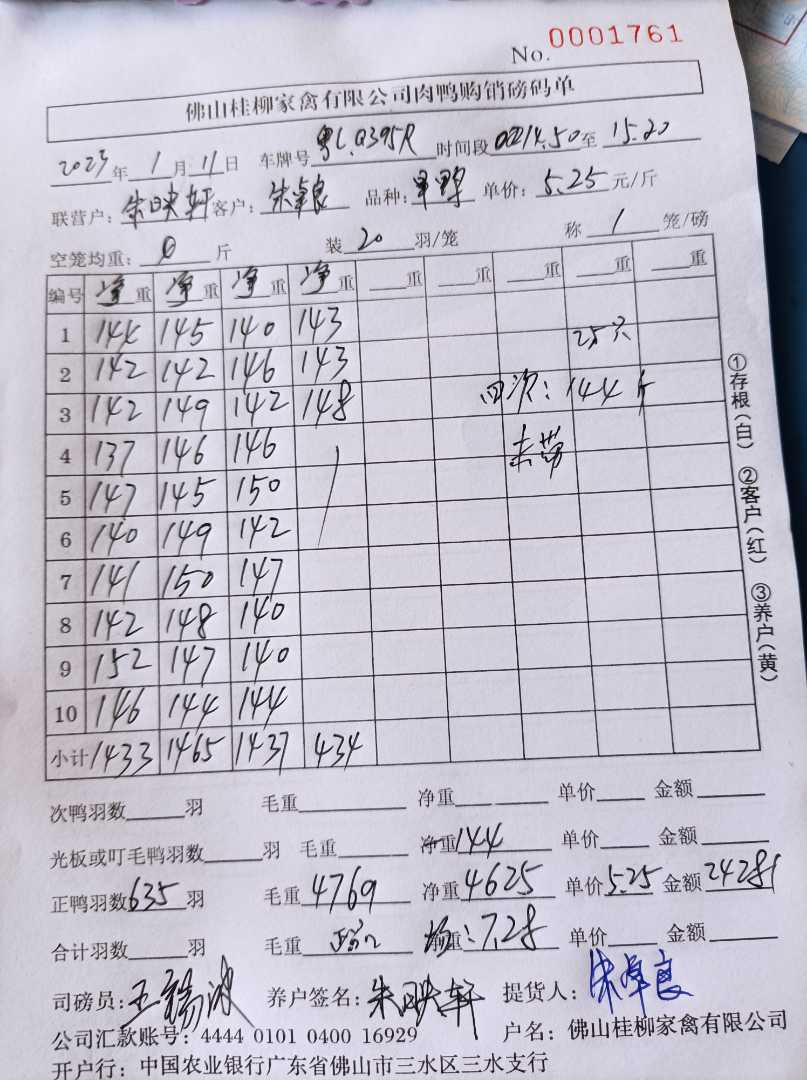 No. 0001761
佛山桂柳家禽有限公司肉鸭购销磅码单
2023年 1月 11日 车牌号 粤L Q395R 时间段 14.50至 15.20
联营户: 朱映轩 客户: 朱卓良 品种: 单价: 5.25 元/斤
空笼均重: 0 斤 装 20 羽/笼 称 1 笼/磅
编号 净重 净重 净重 净重 重 重 重 重 重
1 144 145 140 143 25只
2 142 142 146 143
3 142 149 142 148 四次: 144斤
4 137 146 146 未带
5 147 145 150
6 140 149 142
7 141 150 147
8 142 148 140
9 152 147 140
10 146 144 144
小计 1433 1465 1437 434
①存根(白) ②客户(红) ③养户(黄)
次鸭羽数 羽 毛重 净重 单价 金额
光板或叮毛鸭羽数 羽 毛重 净重 144 单价 金额
正鸭羽数 635 羽 毛重 4769 净重 4625 单价 5.25 金额 24281
合计羽数 羽 毛重 净重 : 7.28 单价 金额
司磅员: 王锡波 养户签名: 朱映轩 提货人: 朱卓良
公司汇款账号: 4444 0101 0400 16929 户名: 佛山桂柳家禽有限公司
开户行: 中国农业银行广东省佛山市三水区三水支行